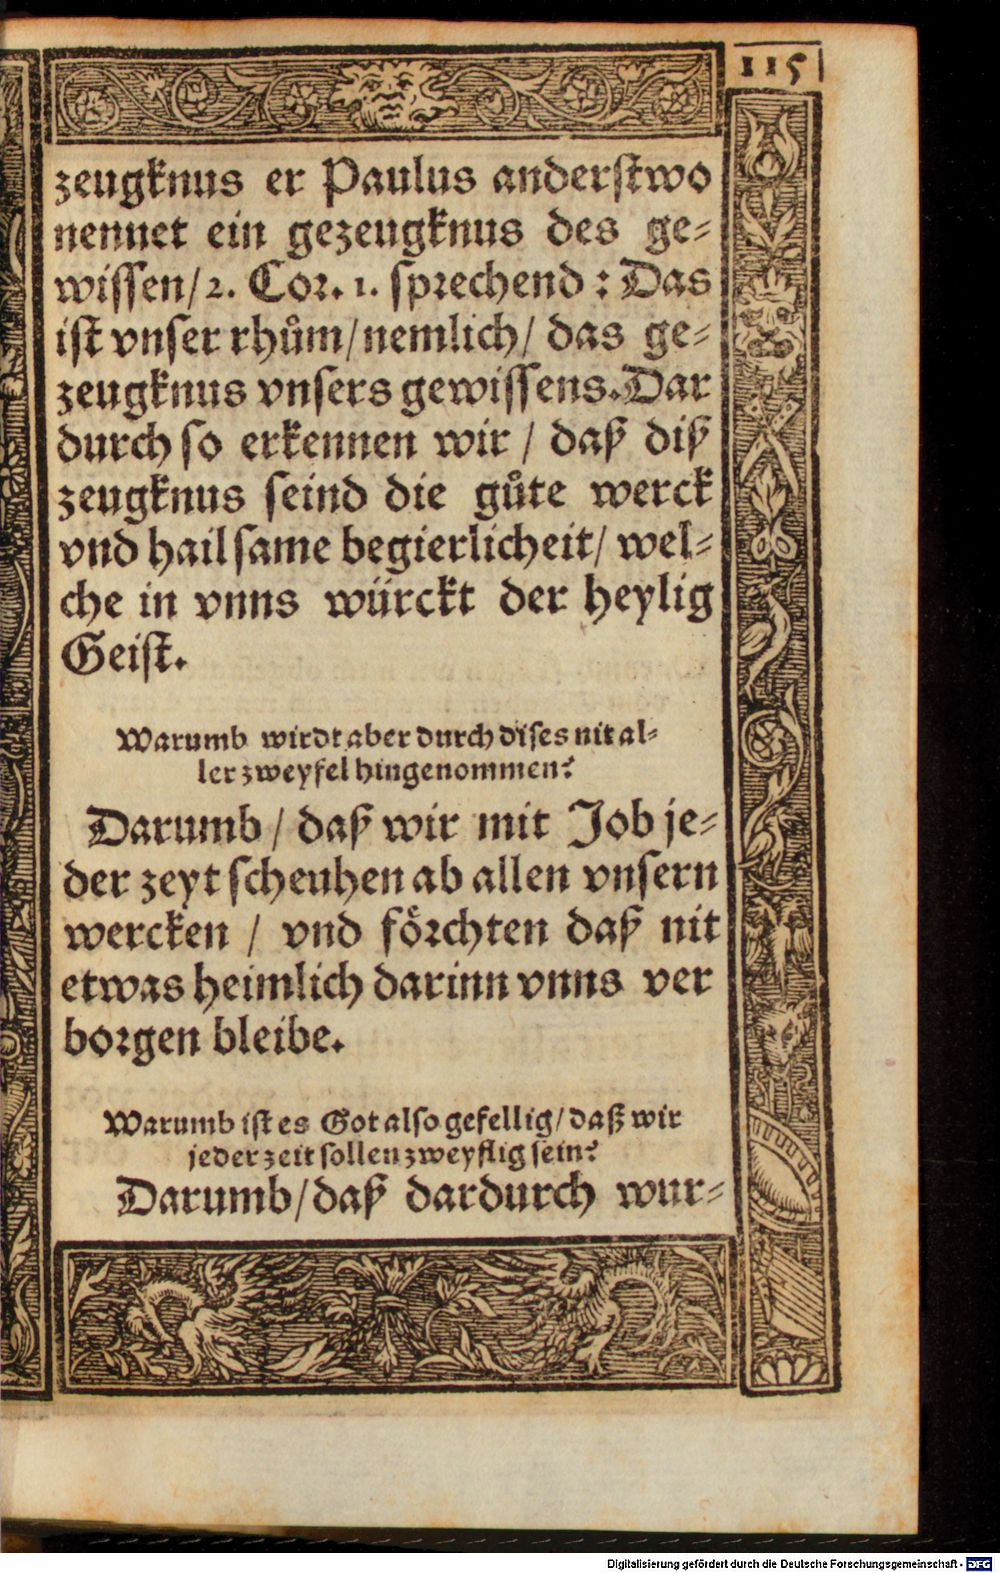 115
zeugknus er Paulus anderſtwo
nennet ein gezeugknus des ge-
wiſſen/ 2. Cor. 1. ſprechend: Das
iſt vnſer rhům/ nemlich/ das ge-
zeugknus vnſers gewiſſens. Dar
durch ſo erkennen wir / daß diß
zeugknus ſeind die gůte werck
vnd hailſame begierlicheit/ wel-
che in vnns würckt der heylig
Geiſt.
Warumb wirdt aber durch diſes nit al-
ler zweyfel hingenommen?
Darumb / daß wir mit Job je-
der zeyt ſcheuhen ab allen vnſern
wercken / vnd foͤrchten daß nit
etwas heimlich darinn vnns ver
borgen bleibe.
Warumb iſt es Got alſo gefellig/ daß wir
jeder zeit ſollen zweyflig ſein?
Darumb/ daß dardurch wur-
Digitalisierung gefördert durch die Deutsche Forschungsgemeinschaft - DFG